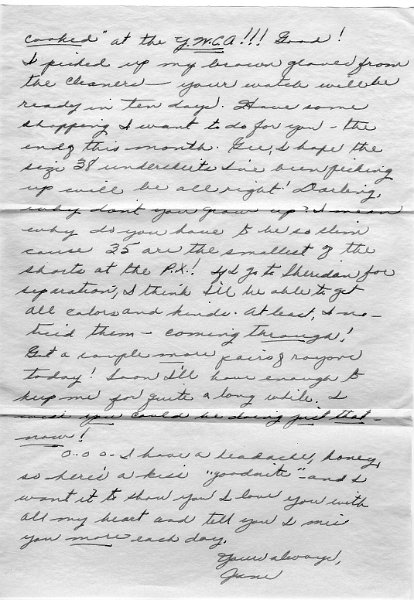 cooked" at the Y.W.C.A!!! Good!
I picked up my brown gloves from
the cleaners - your watch will be
ready in ten days. Have some
shopping I want to do for you - the
end of this month. Gee, I hope the
size 38 undershirts I've been picking
up will be all right! Darling,
why don't you grow up? I mean
why do you have to be so slim
cause 35 are the smallest of the
shorts at the P.X.! If I go to Sheridan for
separation, I think I'll be able to get
all colors and kinds. At least, I no-
ticed them - coming through!
Got a couple more pairs of rayons
today! Soon I'll have enough to
keep me for quite a long while. I
wish you could be doing just that -
now!
O.o.o. I have a headache, honey,
so here's a kiss "goodnite" - and I
want it to show you I love you with
all my heart and tell you I miss
you more each day.
Yours always,
June